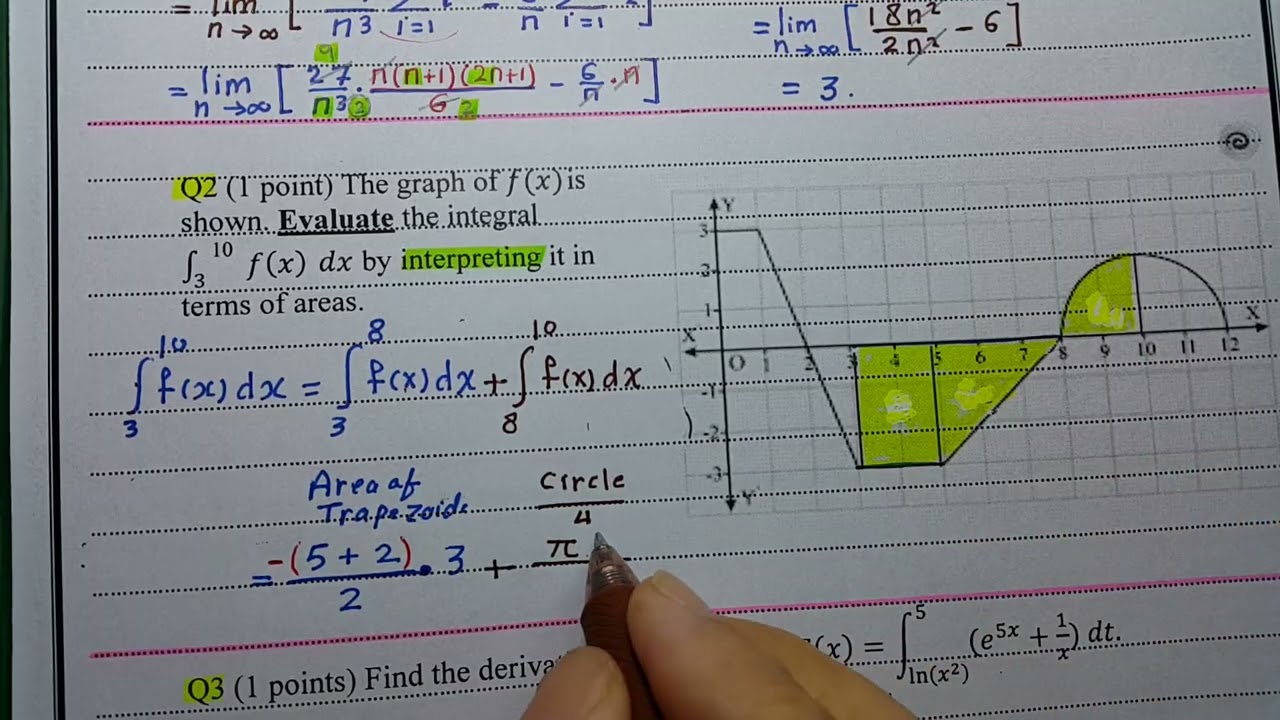 = lim [ n3 i=1 - n i=1 ]
n→∞
= lim [ 18n² / 2n² - 6 ]
n→∞
9
= lim [ 27/n3 · n(n+1)(2n+1)/6 - 6/n · n ]
n→∞ 2 2
= 3.
Q2 (1 point) The graph of f(x) is
shown. Evaluate the integral
∫₃¹⁰ f(x) dx by interpreting it in
terms of areas.
∫₃¹⁰ f(x) dx = ∫₃⁸ f(x) dx + ∫₈¹⁰ f(x) dx
Area of
Trapezoids
Circle
4
= -(5 + 2)/2 · 3 + π
Y
3
3
1
X O 1 2 3 4 5 6 7 8 9 10 11 12 X
-1
-2
-3
Y'
Q3 (1 points) Find the deriva
(x) = ∫_{ln(x²)}^5 (e^{5x} + 1/x) dt.